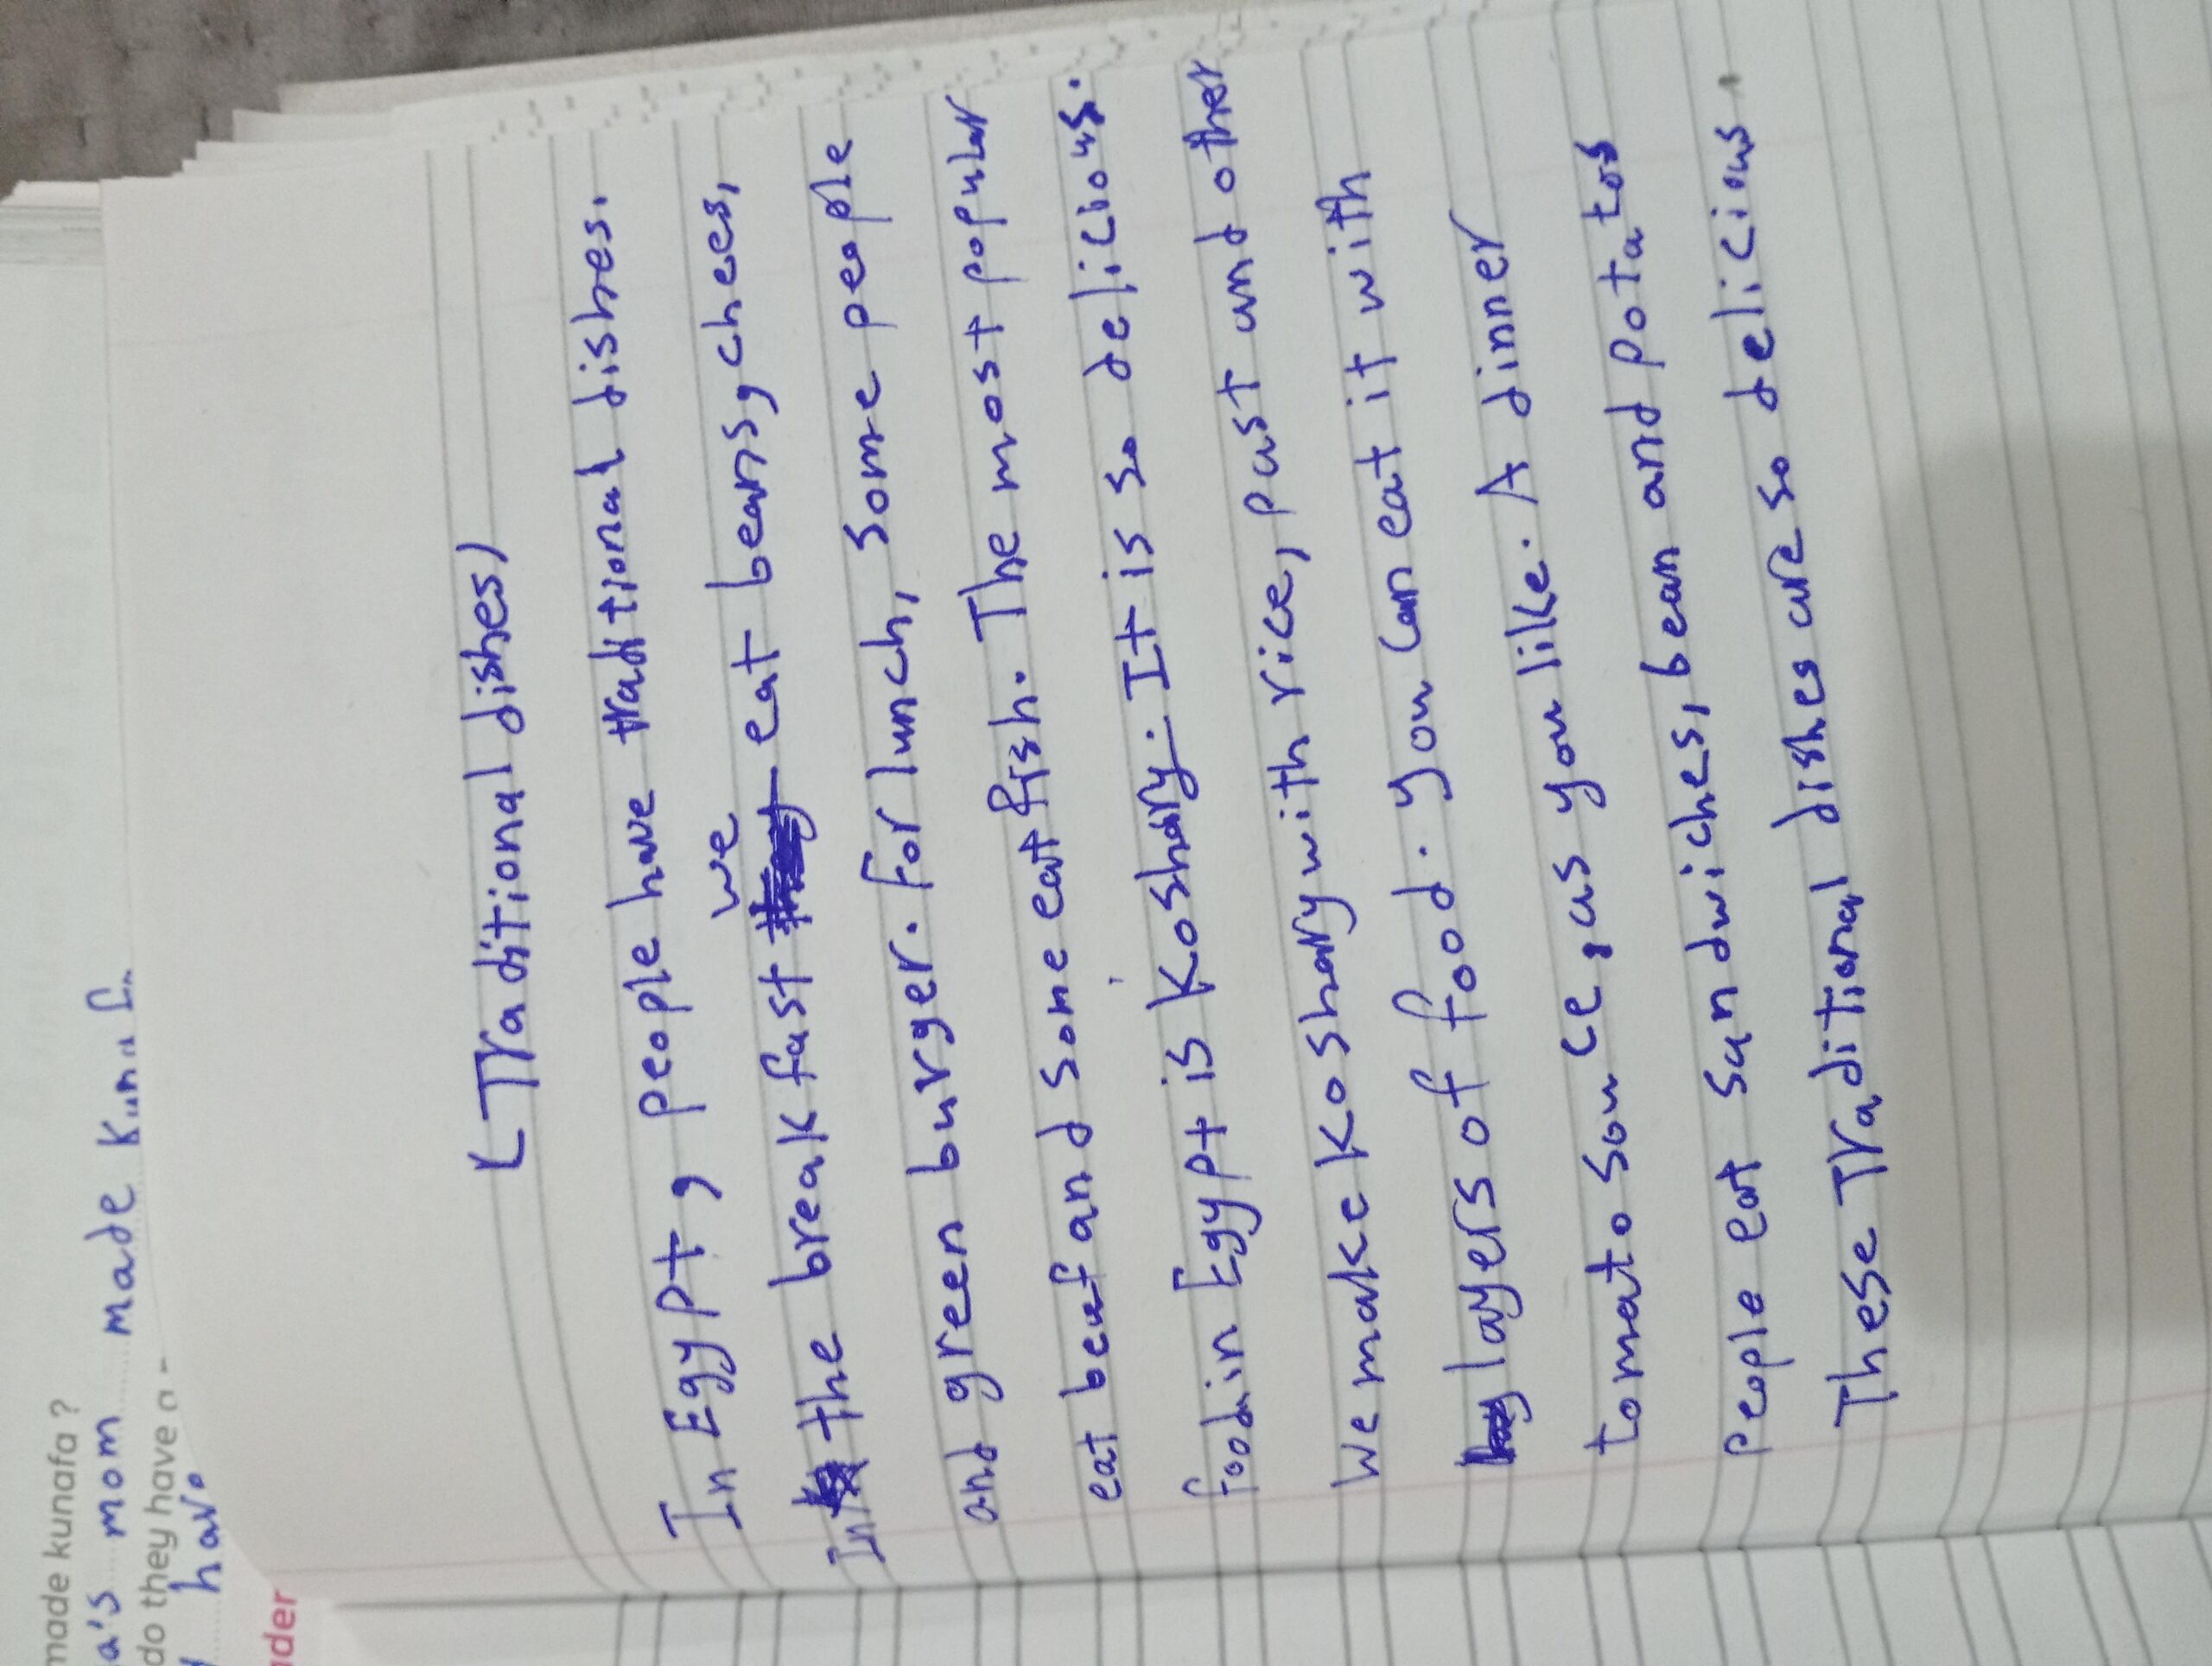 made kunafa?
a's mom made
do they have
have
ader
(Traditional dishes)
In Egypt, people have traditional dishes.
In the break fast we eat beans, chees,
and green burger. For lunch, some people
eat beaf and some eat fish. The most popular
food in Egypt is Koshary. It is so delicious.
We make Koshary with rice, past and other
layers of food. You can eat it with
tomato souce, as you like. A dinner
People eat sandwiches, bean and potatos
These Traditional dishes are so delicious.